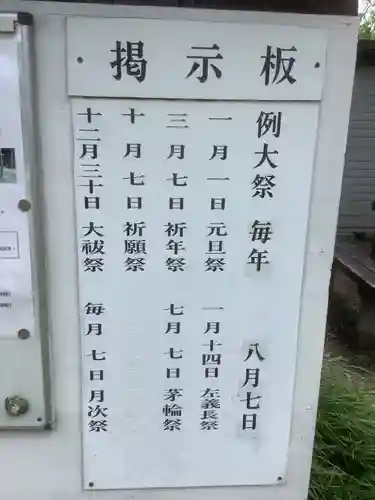 掲示板
例大祭 毎年 八月七日
一月一日 元旦祭 一月十四日 左義長祭
三月七日 祈年祭 七月七日 茅輪祭
十月七日 祈願祭
十二月三十日 大祓祭 毎月七日 月次祭